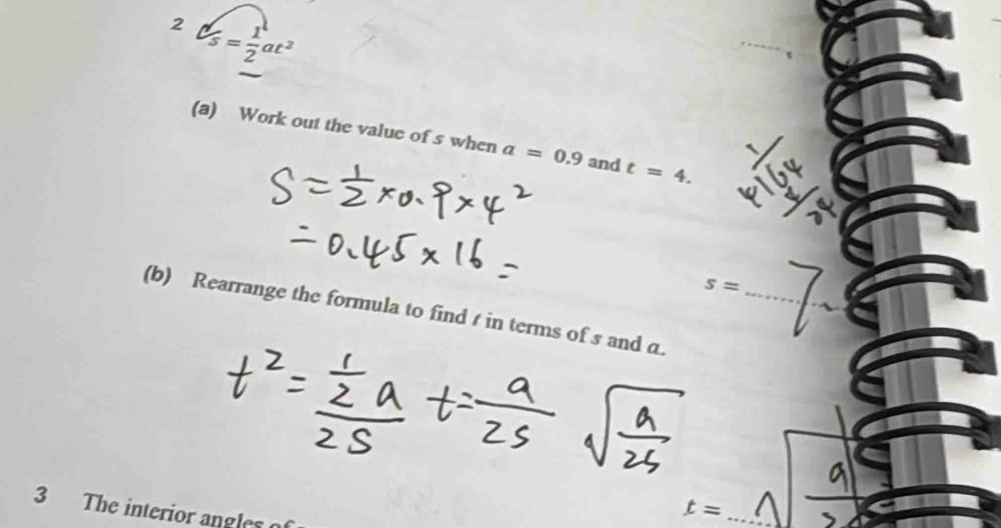 2 s = 1/2 at²
(a) Work out the value of s when a = 0.9 and t = 4.
S = 1/2 × 0.9 × 4²
= 0.45 × 16 =
s = ........
(b) Rearrange the formula to find t in terms of s and a.
t² = (1/2 a)/(2S) t = a/(2s) √(a/(2s))
t = ........ √(a/
3 The interior angles